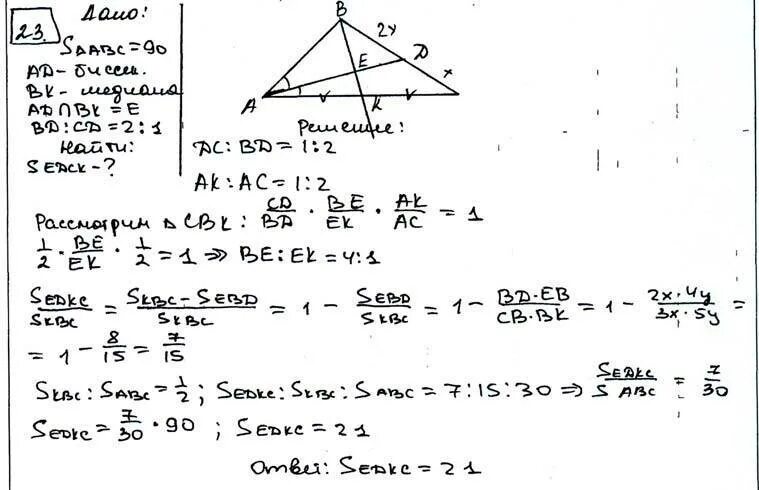 23.
Дано:
S△ABC = 90
AD - биссек.
BK - медиана
AD ∩ BK = E
BD : CD = 2 : 1
Найти:
SEDCK - ?
B
2x
D
E
x
A
K
Решение:
DC : BD = 1 : 2
AK : AC = 1 : 2
Рассмотрим △ CBK : CD/BD · BE/EK · AK/AC = 1
1/2 · BE/EK · 1/2 = 1 ⇒ BE : EK = 4 : 1
SEDKC/SKBC = SKBC - SEBD/SKBC = 1 - SEBD/SKBC = 1 - BD·EB/CB·BK = 1 - 2x·4y/3x·5y =
= 1 - 8/15 = 7/15
SKBC : SABC = 1/2 ; SEDKC : SKBC : SABC = 7 : 15 : 30 ⇒ SEDKC/SABC = 7/30
SEDKC = 7/30 · 90 ; SEDKC = 21
Ответ: SEDKC = 21